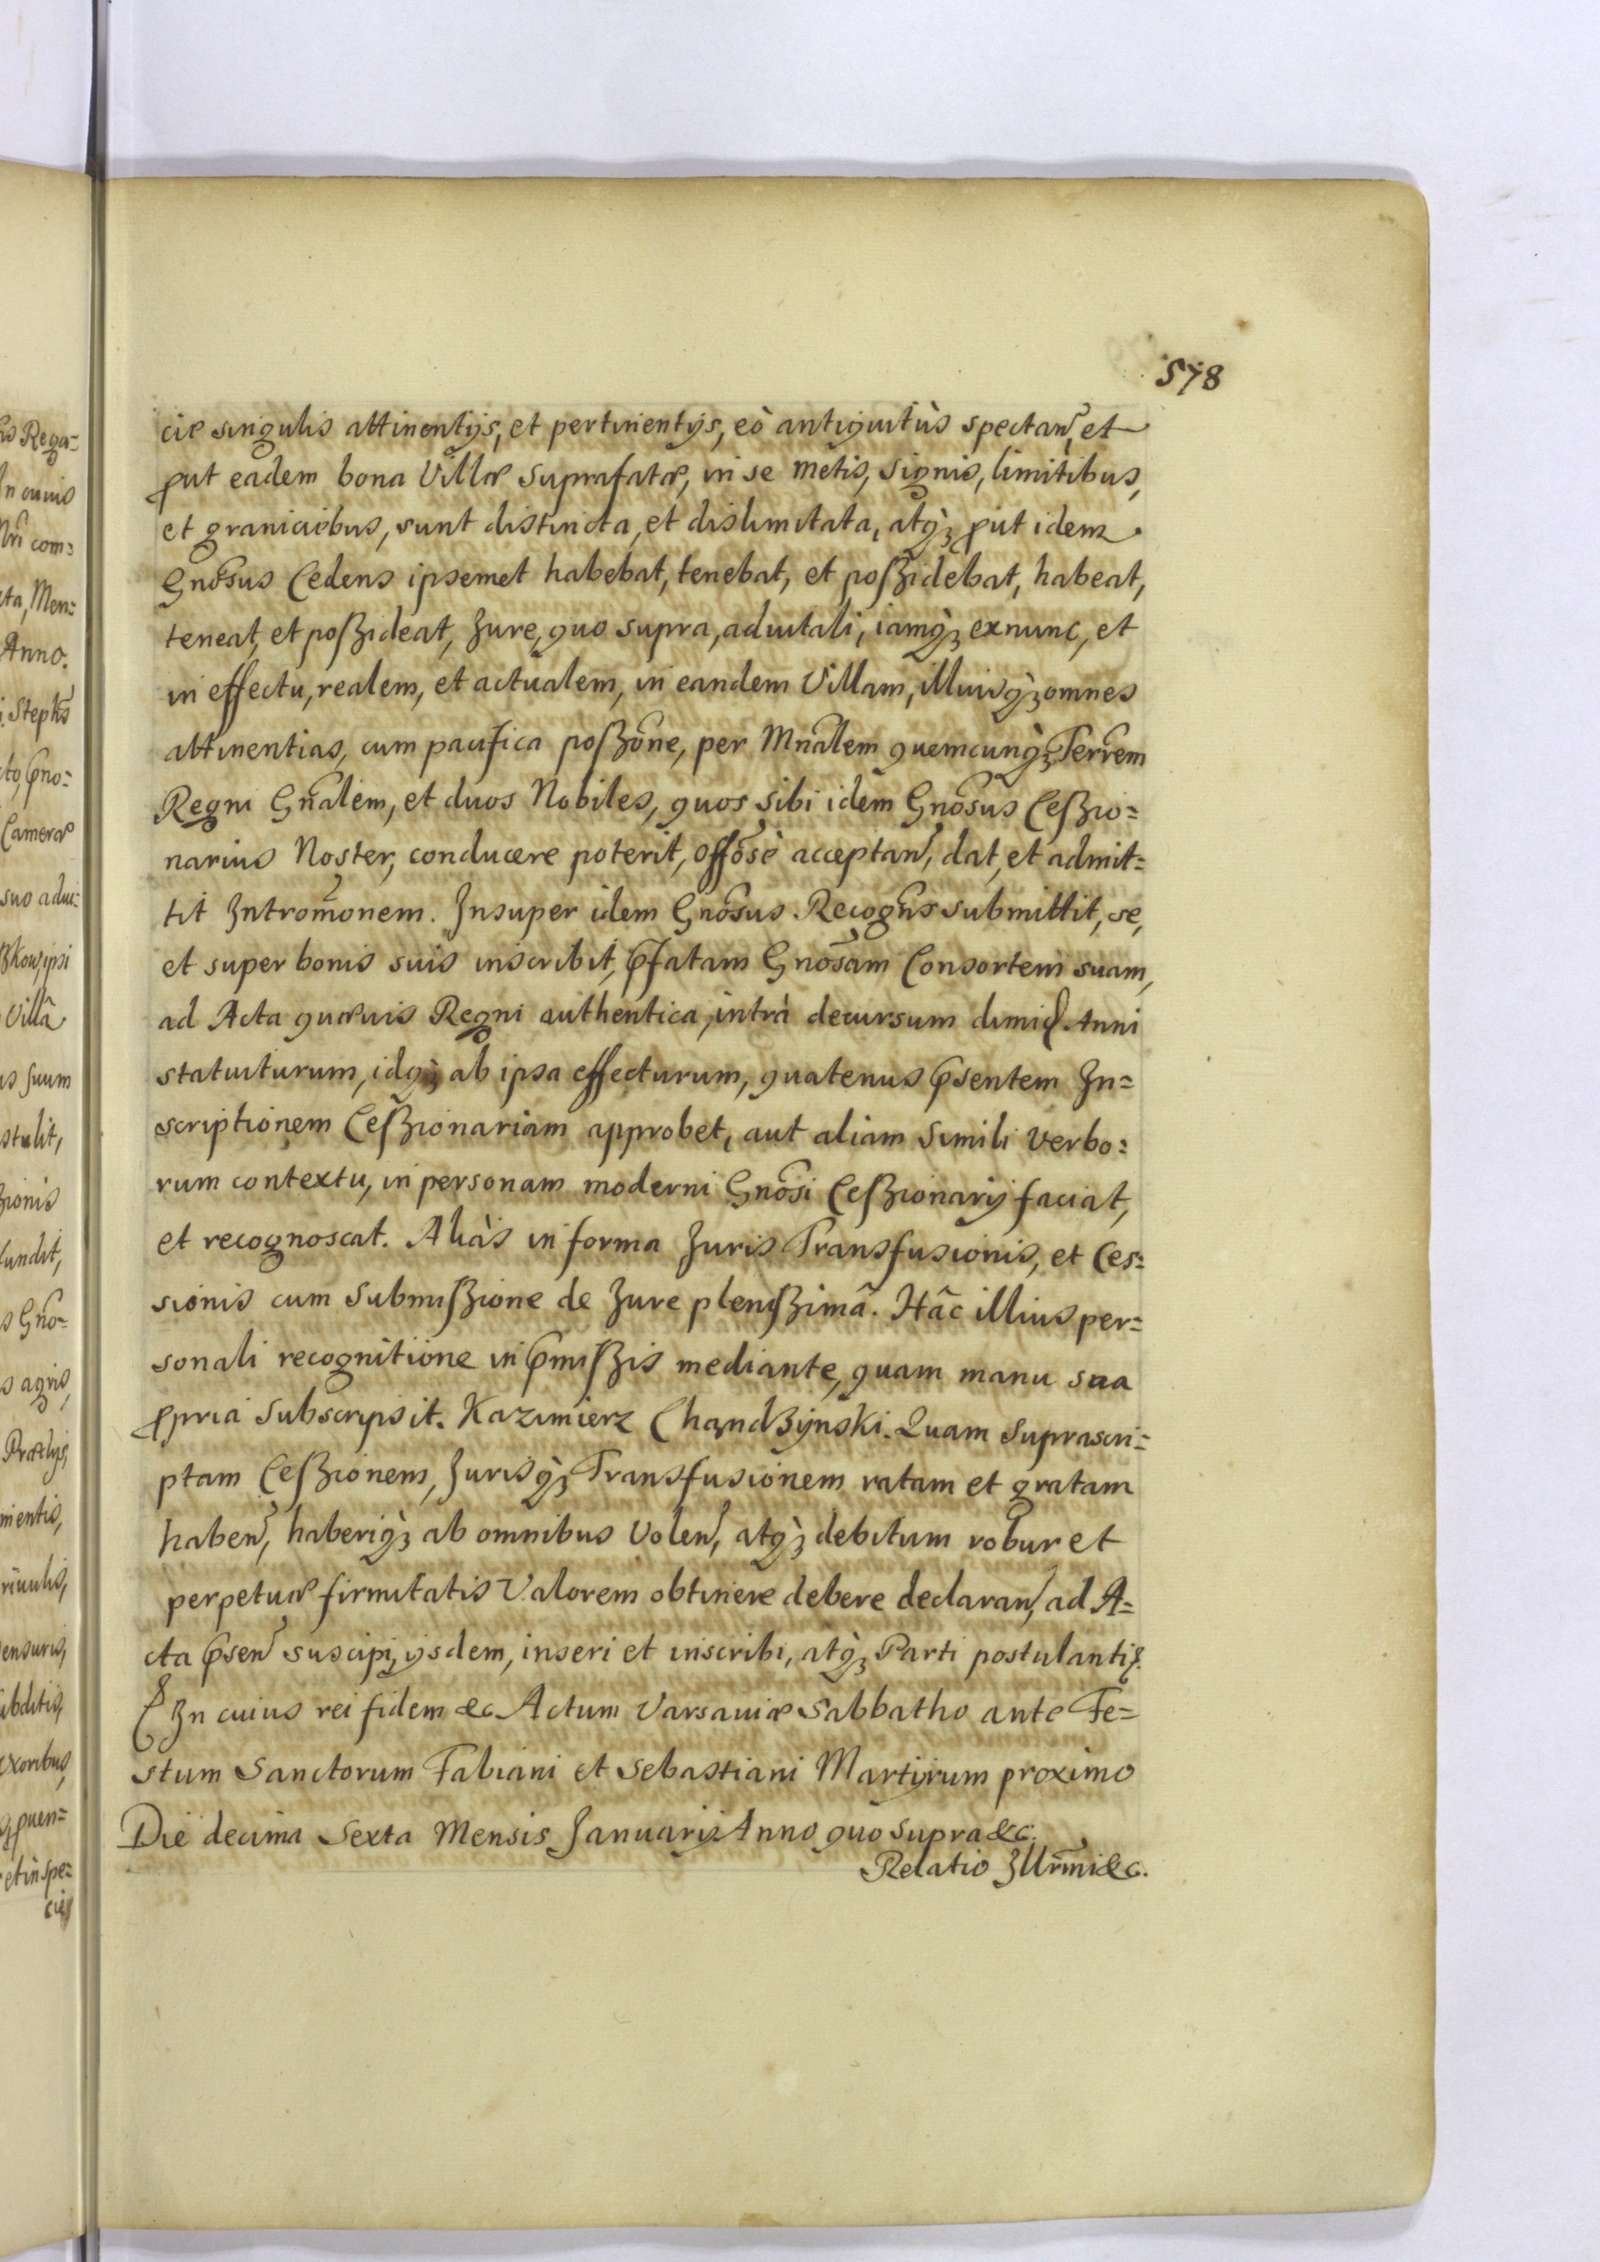 578
cie singulis attinentijs, et pertinentijs, eò antiquitùs spectan̄, et
ꝓut eadem bona Villæ suprafatæ, in se metis, signis, limitibus,
et granicicbus, sunt distincta, et dislimitata, atq̀ꝫ ꝓut idem
Gnōsus Cedens ipsemet habebat, tenebat, et poßidebat, habeat,
teneat, et poßideat, Jure, quo supra, aduitali, iamq̀ꝫ exnunc, et
in effectu, realem, et actualem, in eandem Villam, illiusq̀ꝫ omnes
attinentias, cum pacifica poßōne, per Mn̄alem quemcunq̀ꝫ Terr̄em
Regni Gn̄alem, et duos Nobiles, quos sibi idem Gnōsus Ceßio=
narius Noster, conducere poterit, offōsè acceptan̄, dat, et admit=
tit Intromōnem. Insuper idem Gnōsus Recogn̄s submittit, se,
et super bonis suis inscribit, p̄fatam Gnōsam Consortem suam,
ad Acta quæuis Regni authentica, intrà decursum dimid Anni
statuiturum, idq̀ꝫ ab ipsa effecturum, quatenus p̄sentem In=
scriptionem Ceßionariam approbet, aut aliam simili verbo=
rum contextu, in personam moderni Gnōsi Ceßionarij faciat,
et recognoscat. Aliàs in forma Juris Transfusionis, et Ces=
sionis cum submißione de Jure plenißimâ. Hâc illius per=
sonali recognitione in p̄mißis mediante, quam manu sua
ꝓpria subscripsit. Kazimierz Chądzÿnski. Quam suprascri=
ptam Ceßionem, Jurisq̀ꝫ Transfusionem ratam et gratam
haben̄, haberiq̀ꝫ ab omnibus volen̄, atq̀ꝫ debitum robur et
perpetuæ firmitatis Valorem obtinere debere declaran̄, ad A=
cta p̄sen̄ suscipi, ijsdem, inseri et inscribi, atq̀ꝫ Parti postulanti
In cuius rei fidem &c Actum Varsauiæ Sabbatho ante Fe=
stum Sanctorum Fabiani et Sebastiani Martÿrum proximo
Die decima Sexta Mensis Januarij Anno quo supra &c.
Relatio Illr̄mi &c.